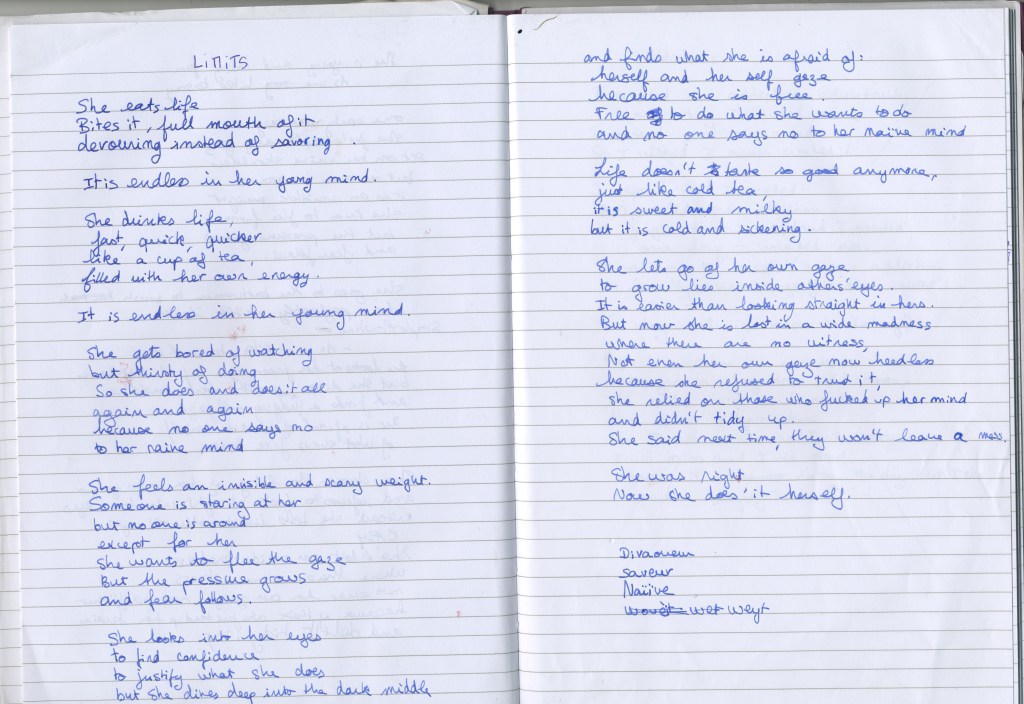 LIMITS
She eats life
Bites it, full mouth of it
devouring instead of savoring.
It is endless in her young mind.
She drinks life,
fast, quick, quicker
like a cup of tea,
filled with her own energy.
It is endless in her young mind.
She gets bored of watching
but thirsty of doing
So she does and does it all
again and again
because no one says no
to her naive mind
She feels an invisible and scary weight.
Someone is staring at her
but no one is around
except for her
She wants to flee the gaze
But the pressure grows
and fear follows.
She looks into her eyes
to find confidence
to justify what she does
but she dives deep into the dark middle
and finds what she is afraid of:
herself and her self gaze
because she is free.
Free to do what she wants to do
and no one says no to her naïve mind
Life doesn't taste so good anymore,
just like cold tea,
it is sweet and milky
but it is cold and sickening.
She lets go of her own gaze
to grow lies inside others' eyes.
It is easier than looking straight in hers.
But now she is lost in a wide madness
where there are no witness,
Not even her own gaze now, heedless
because she refused to trust it,
she relied on those who fucked up her mind
and didn't tidy up.
She said next time, they won't leave a mess.
She was right
Now she does it herself.
Divaoueur
saveur
Naïive
wet weyt